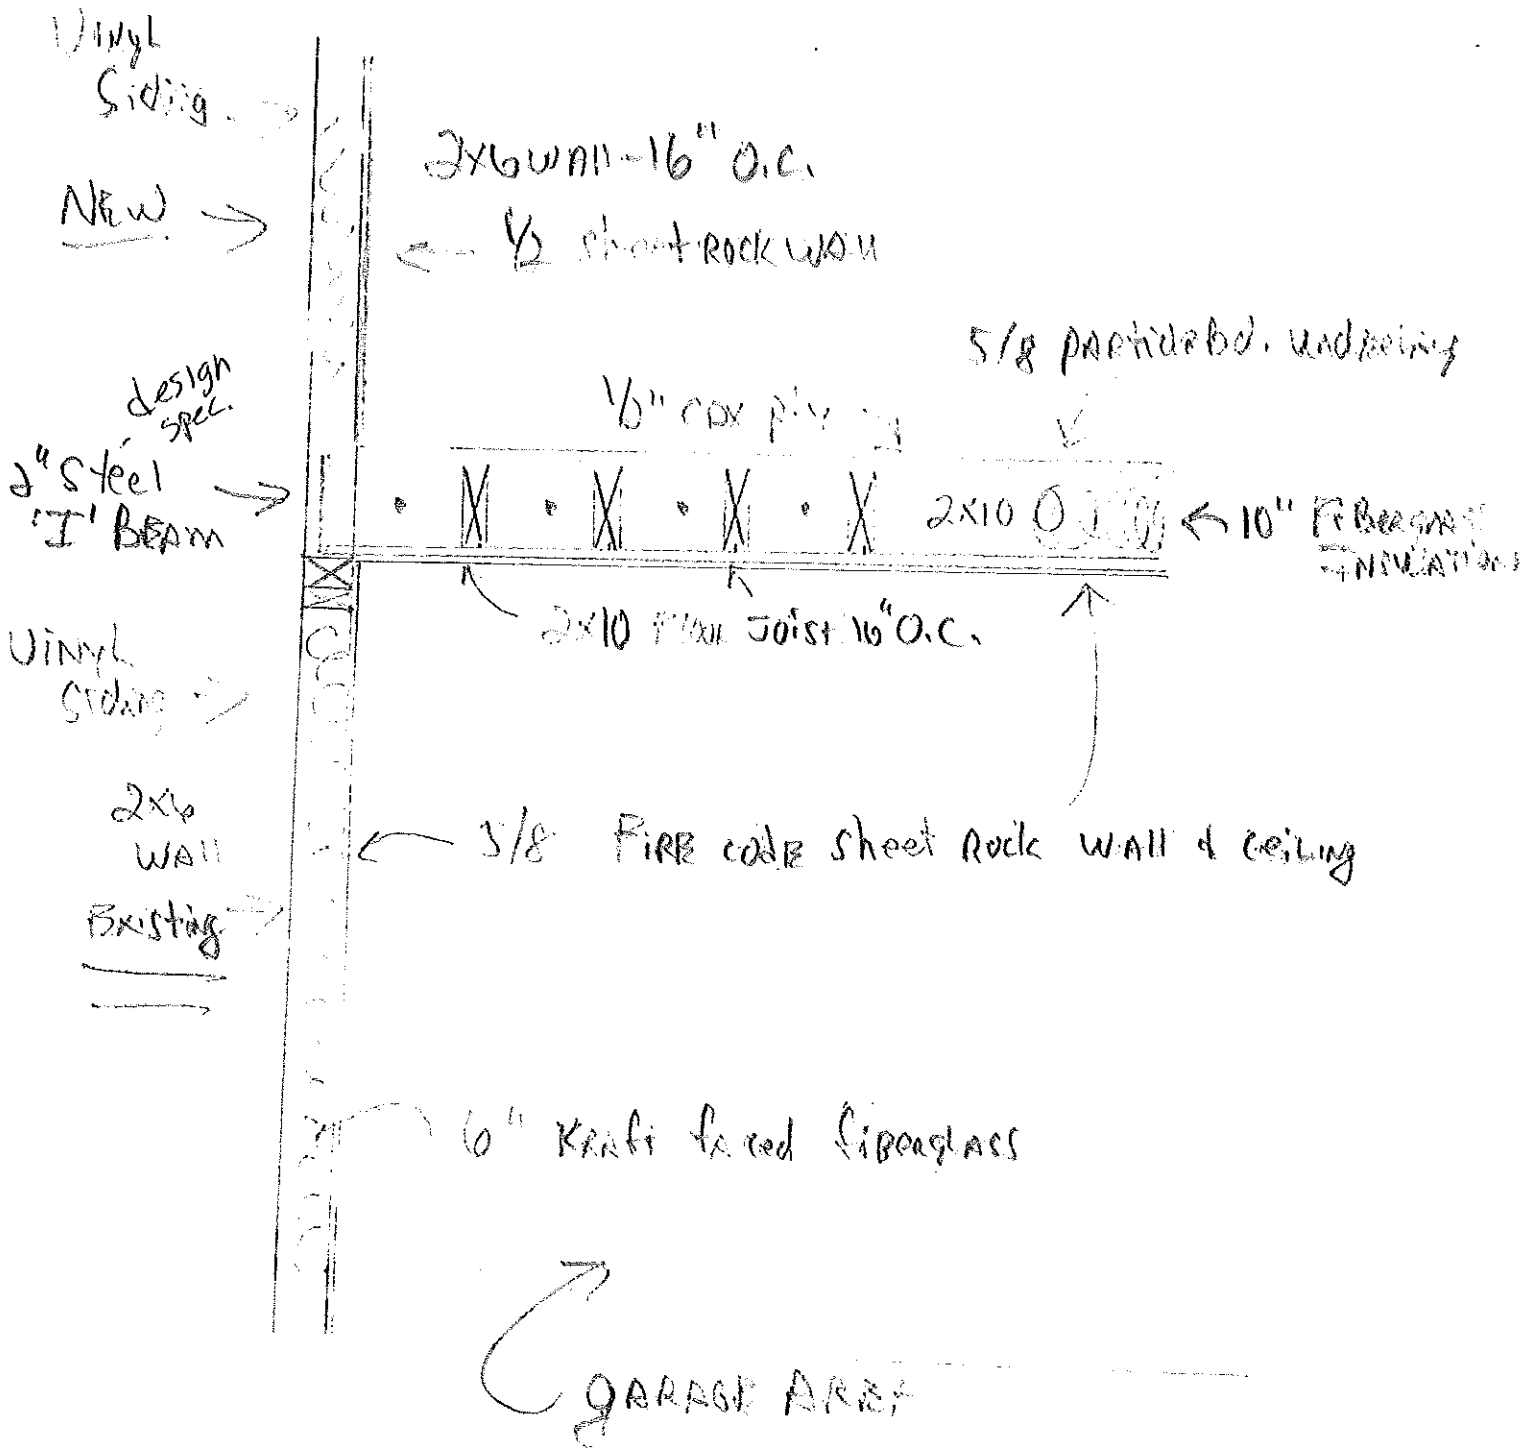 Vinyl
Siding
NEW
2x6 WAll - 16" O.C.
1/2 sheetROCK WAll
5/8 PARticleBd.
1/2" CDX ply
design
spec.
2" Steel
'I' BEAM
2x10
10" FiBERglass
INSULATION
2x10 Floor Joist 16" O.C.
ViNYL
Siding
2x6
WAll
Existing
5/8 FIRE codE Sheet Rock WAll & CeiliNg
6" KRAft faced fiBERglASS
gARAGE AREA